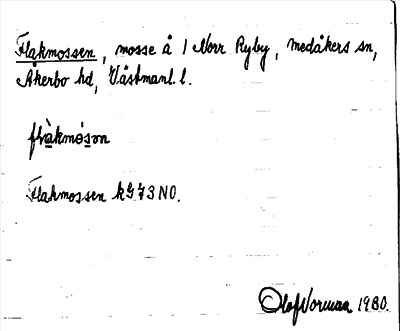 Flakmossen, mosse å 1 Norr Ryby, Medåkers sn,
Åkerbo hd, Västmanl. l.
flàkmóson
Flakmossen k G73 NO.
Olof Norman 1930.